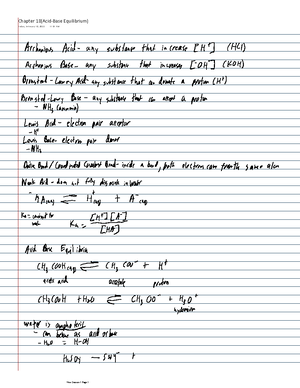 Chapter 13(Acid-Base Equilibrium)
Arrhenius Acid - any substance that increase [H⁺] (HCl)
Arrhenius Base - any substance that increases [OH⁻] (KOH)
Bronsted-Lowry Acid - any substance that can donate a proton (H⁺)
Bronsted-Lowry Base - any substance that can accept a proton
- NH₃ (ammonia)
Lewis Acid - electron pair acceptor
- H⁺
Lewis Base - electron pair donor
- NH₃
Dative Bond / Coordinate Covalent Bond - inside a bond, both electrons come from the same atom
Weak Acid - does not fully dissociate in water
HA(aq) ⇌ H⁺(aq) + A⁻(aq)
Ka = constant for
weak
Ka = [H⁺][A⁻]
[HA]
Acid Base Equilibria
CH₃COOH(aq) ⇌ CH₃COO⁻ + H⁺
acetic acid acetate proton
CH₃COOH + H₂O ⇌ CH₃COO⁻ + H₃O⁺
hydronium
water is amphoteric
- can behave as acid or base
- H₂O = H-OH
H₂SO₄ → SO₄²⁻ +